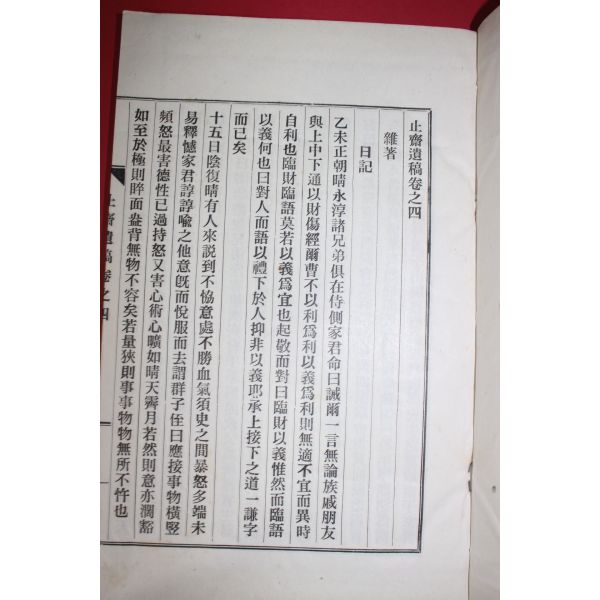 止齋遺稿卷之四
雜著
日記
乙未正朝晴永淳諸兄弟俱在侍側家君命曰誡爾一言無論族戚朋友
與上中下通以財傷經爾曹不以利爲利以義爲利則無適不宜而異時
自利也臨財臨語莫若以義爲宜也起敬而對曰臨財以義惟然而臨語
以義何也曰對人而語以禮下於人抑非以義耶承上接下之道一謙字
而已矣
十五日陰復晴有人來説到不協意處不勝血氣須臾之間暴怒多端未
易釋憾家君諄諄喩之他意旣而悅服而去謂群子侄曰應接事物橫豎
頻怒最害德性已過持怒又害心術心曠如晴天霽月若然則意亦濶豁
如至於極則睟面盎背無物不容矣若量狹則事事物物無所不忤也
止齋遺稿卷之四
一